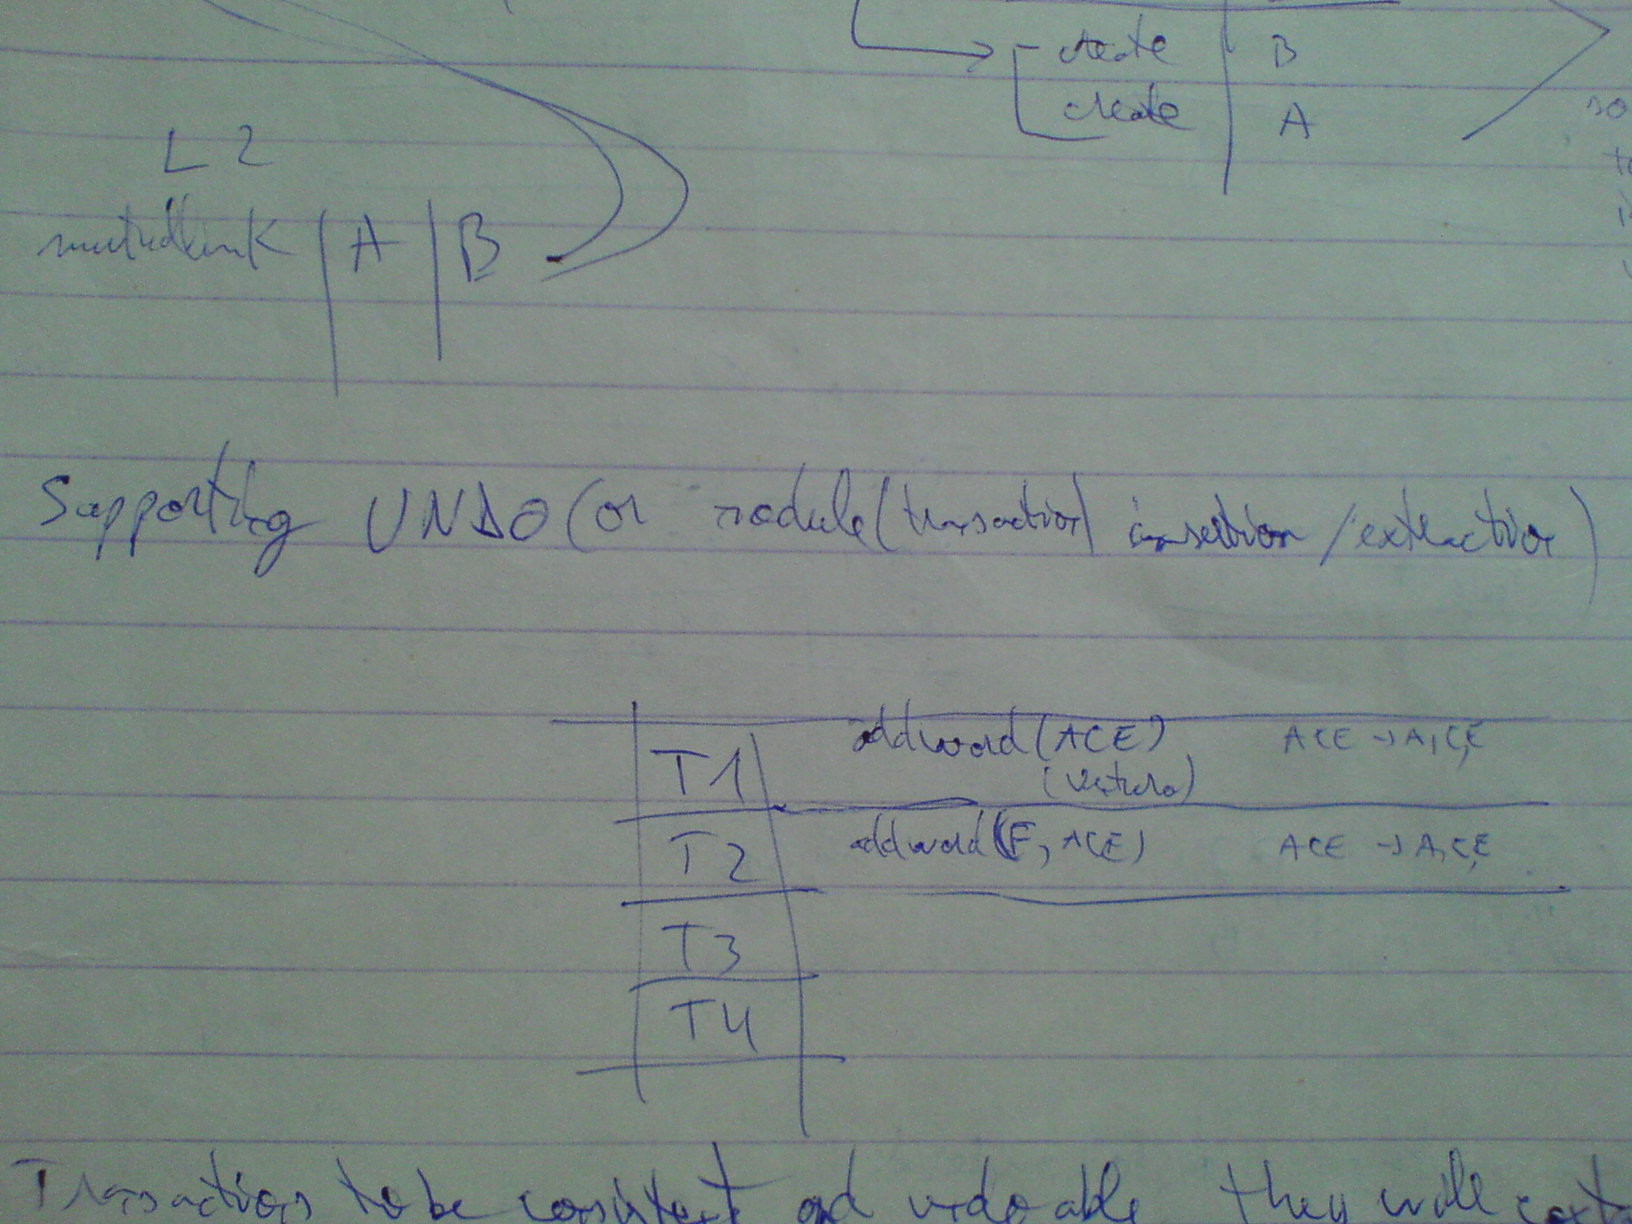 create B
create A
so
L2
mutuallink | A | B
Supporting UNDO (or module (transaction) insertion / extraction)
T1 addword (ACE) ACE → A,C,E
T2 addword (E, ACE) ACE → A,C,E
T3
T4
Transactions to be consistent and undoable they will